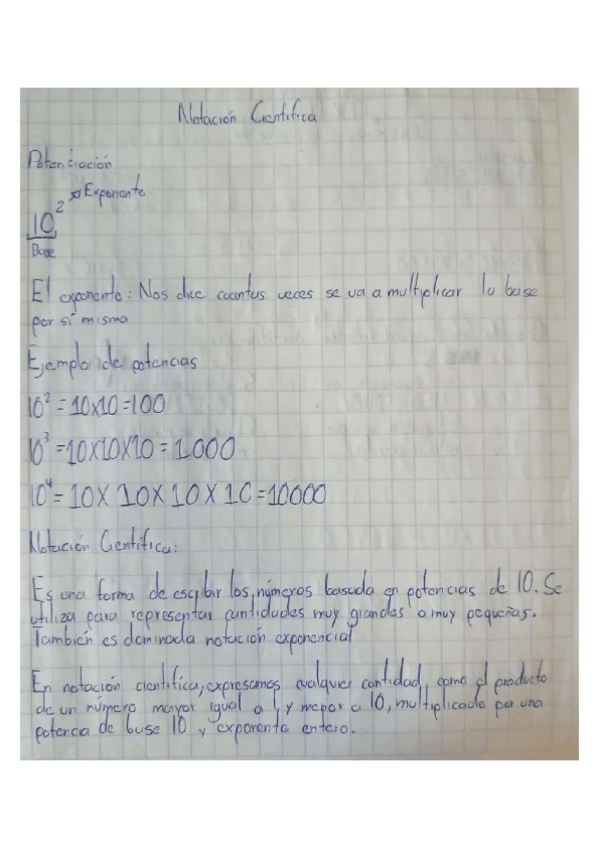 Notación Cientifica
Potenciación
10² Exponente
Base
El exponente: Nos dice cuantas veces se va a multiplicar la base
por sí misma
Ejemplo de potencias
10² = 10x10 = 100
10³ = 10X10X10 = 1000
10⁴ = 10X 10X 10 X 10 = 10000
Notación Cientifica:
Es una forma de escribir los números basada en potencias de 10. Se
utiliza para representar cantidades muy grandes o muy pequeñas.
También es dominada notación exponencial
En notación cientifica, expresamos cualquier cantidad, como el producto
de un número mayor igual a 1, y menor a 10, multiplicado por una
potencia de base 10 y exponente entero.